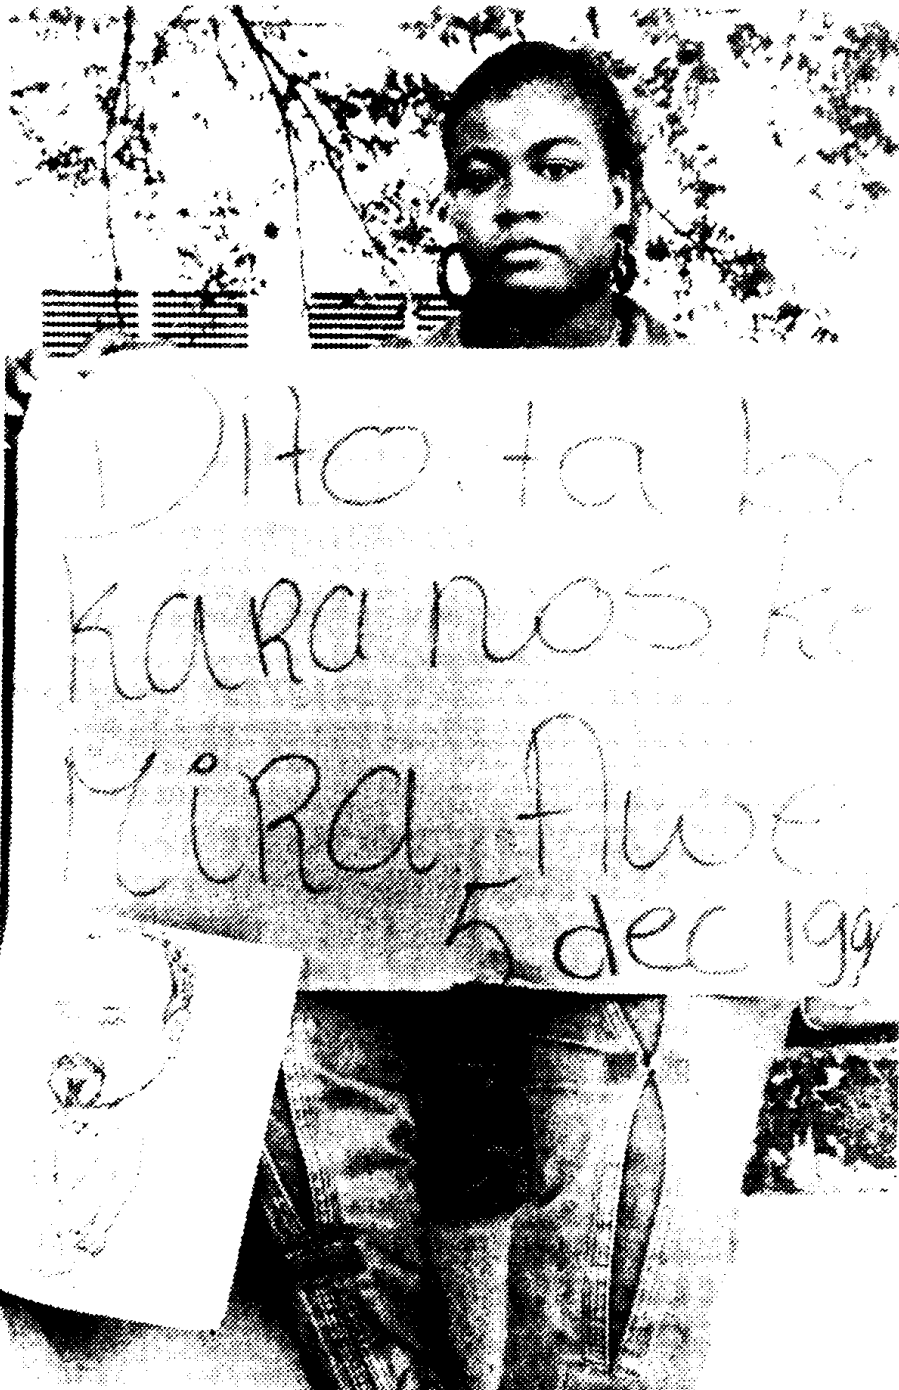 Dito. ta
kaRa nos
MiRa. Awe
5 dec 199